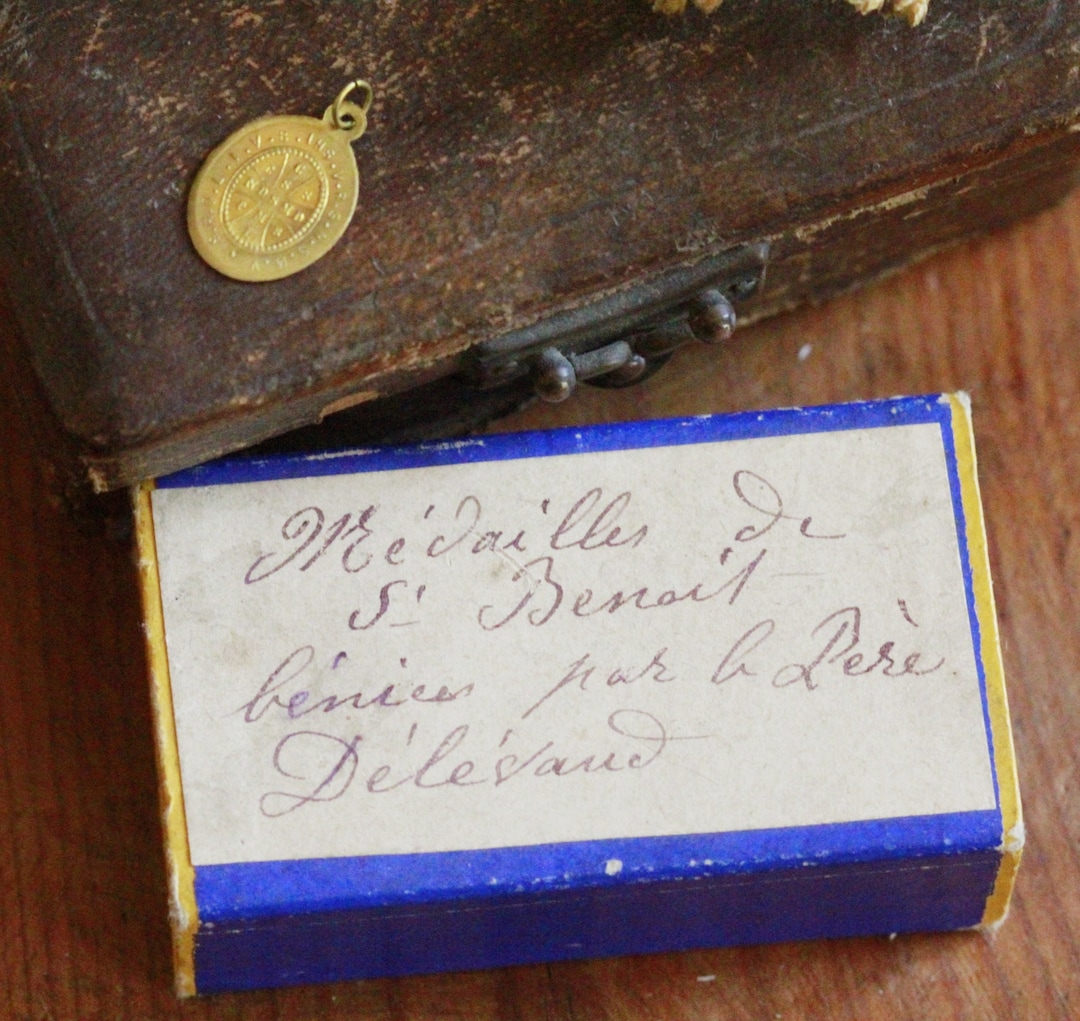 V · S · 
Médailles de
St Benoît
bénies par le Père
Délévaud